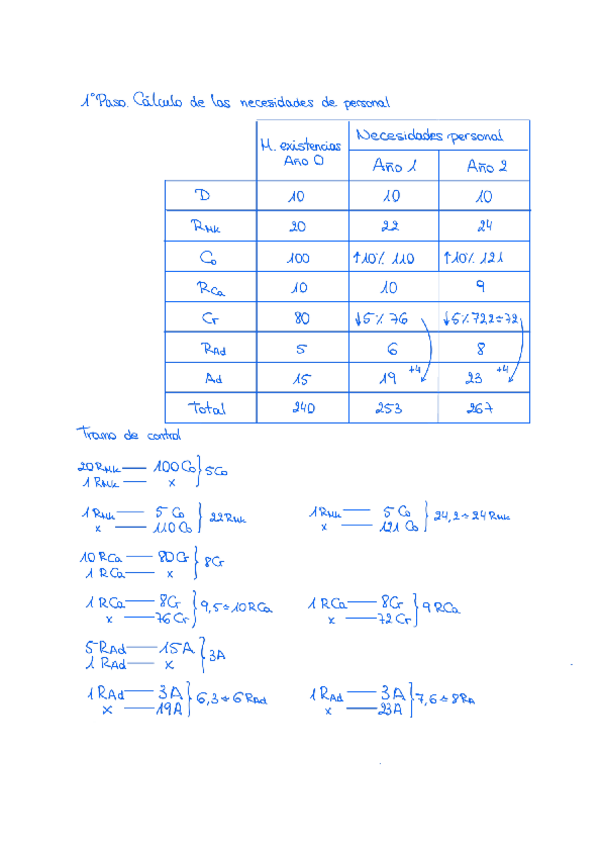 1º Paso. Cálculo de las necesidades de personal
M. existencias Año 0
Necesidades personal
Año 1 Año 2
D 10 10 10
RMk 20 22 24
Co 100 ↑10% 110 ↑10% 121
RCa 10 10 9
Cr 80 ↓5% 76 ↓5% 72,2≈72
RAd 5 6 8
Ad 15 19 +4 23 +4
Total 240 253 267
Tramo de control
20 RMk — 100 Co } 5 Co
1 RMk — x
1 RMk — 5 Co } 22 RMk 1 RMk — 5 Co } 24,2 ≈ 24 RMk
x — 110 Co x — 121 Co
10 RCa — 80 Cr } 8 Cr
1 RCa — x
1 RCa — 8 Cr } 9,5 ≈ 10 RCa 1 RCa — 8 Cr } 9 RCa
x — 76 Cr x — 72 Cr
5 RAd — 15 A } 3A
1 RAd — x
1 RAd — 3 A } 6,3 ≈ 6 RAd 1 RAd — 3 A } 7,6 ≈ 8 RA
x — 19 A x — 23 A